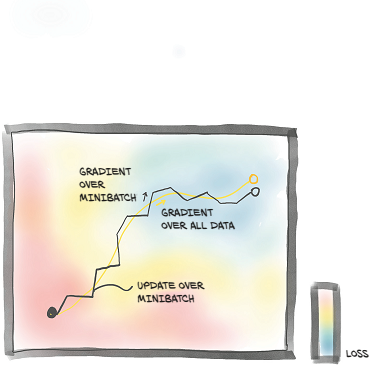 GRADIENT
OVER
MINIBATCH
GRADIENT
OVER ALL DATA
UPDATE OVER
MINIBATCH
LOSS